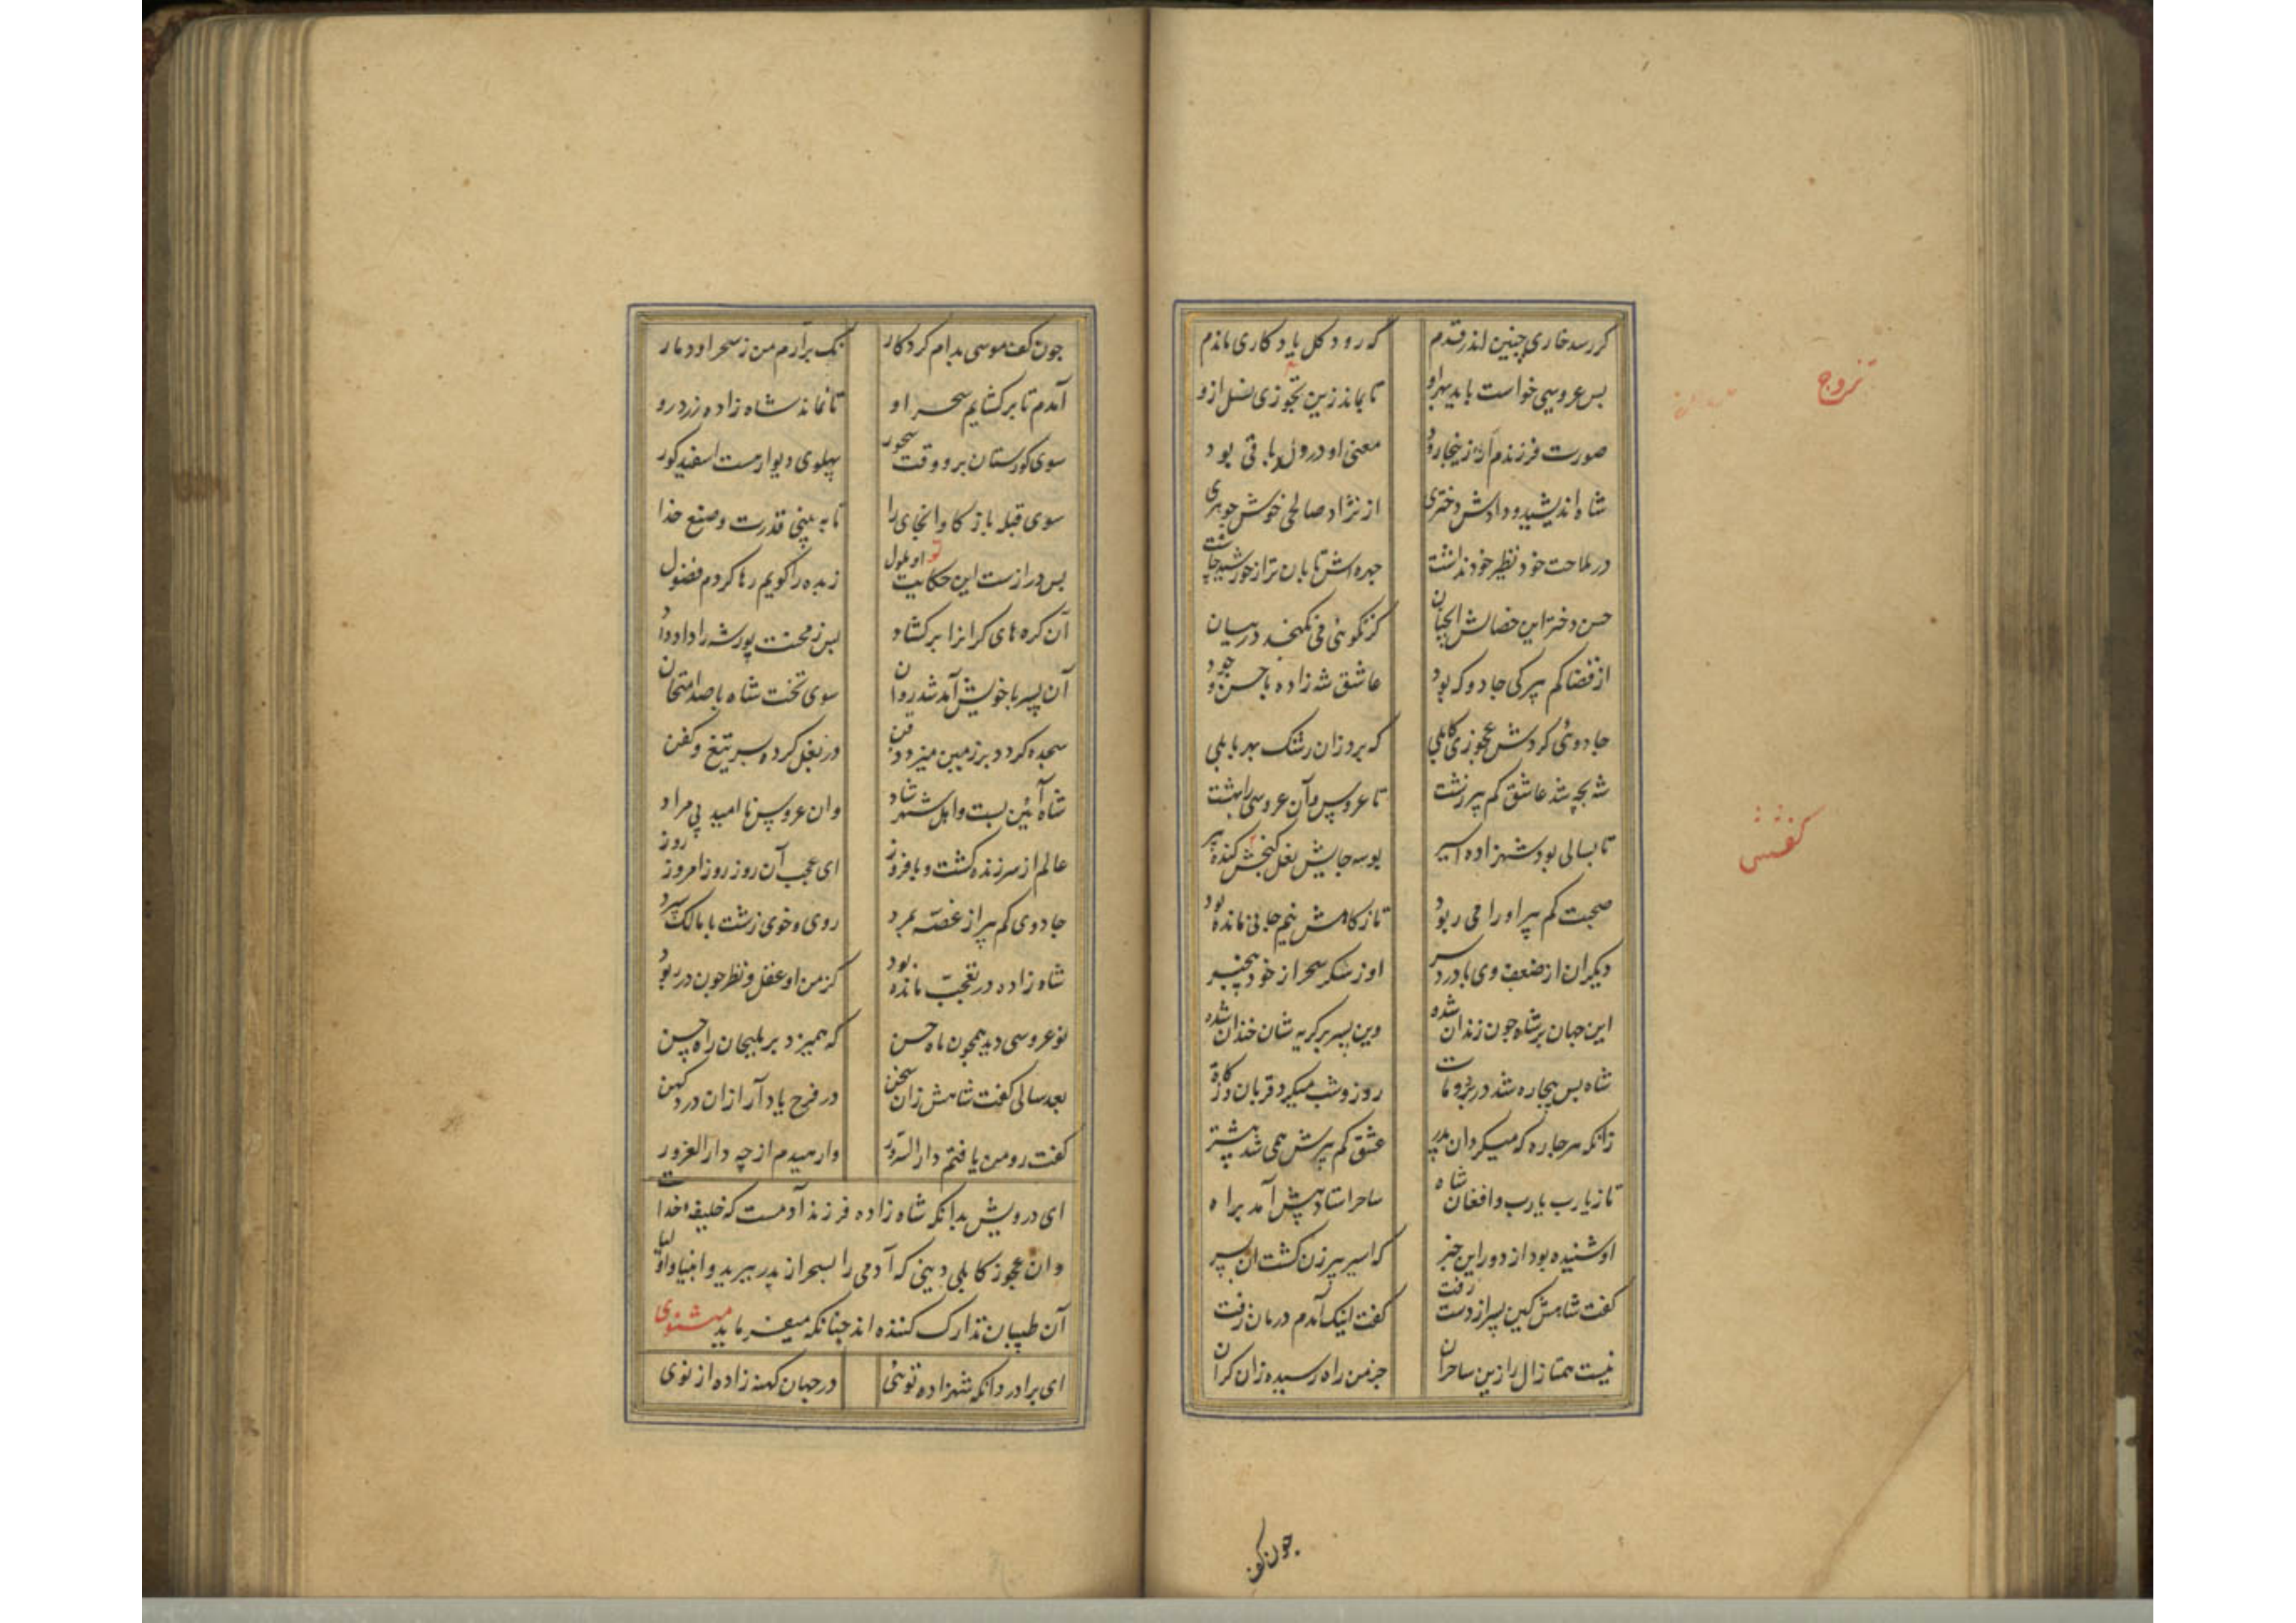 کر رسد خاری چنین اندر قدم که رود کل یادکاری ماندم
بس عروسی خواست باید بهر او تا بماند زین تجوزی نسل ازو
صورت فرزندم ار زینجا رود معنی او در ولد باقی بود
شاه اندیشید و دادش دختری از نژاد صالحی خوش جوهری
در ملاحت خود نظیر خود نداشت جهره اش تابان تر از خورشید جاشت
حسن دختر این خصالش آنجنان کز نکوئی می نکنجد در بیان
از قضا کم پیرکی جادو که بود عاشق شه زاده با حسن و جود
جادوئی کردش عجوزی کابلی که برد زان رشک سحر بابلی
شه بچه شد عاشق کم پیر زشت تا عروس و آن عروسی را بهشت
تا بسالی بود شهزاده اسیر بوسه جایش نعل کفش کنده پیر
صحبت کم پیر او را می ربود تا ز کاهش نیم جانی مانده بود
دیکران از ضعف وی با درد سر او ز سکر سحر از خود بیخبر
این جهان بر شاه جون زندان شده وین پسر بر کریه شان خندان شده
شاه بس بیجاره شد در برد و مات روز و شب میکرد قربان و زکاة
زانکه هر جاره که میکرد ان پدر عشق کم پیرش همی شد بیشتر
تا ز یارب یارب و افغان شاه ساحر استاد پیش آمد براه
او شنیده بود از دور این خبر که اسیر پیرزن کشت ان پسر
کفت شاهش کین پسر از دست رفت کفت اینک آمدم درمان زفت
نیست همتا زال را زین ساحران جز من راه رسیده زان کران
تزوج
کفشش
جون کف
جون کف موسی بدام کردکار نک برآرم من ز سحر او دمار
آمدم تا بر کشایم سحر او تا نماند شاه زاده زرد رو
سوی کورستان برو وقت سحور پهلوی دیوار هست اسفید کور
سوی قبله باز کاو انجای را تا به بینی قدرت و صنع خدا
بس درازست این حکایت تو ملول زبده را کویم رها کردم فضول
آن کره های کرانرا بر کشاد بس ز محنت پور شه را داد داد
آن پسر با خویش آمد شد روان سوی تخت شاه با صد امتحان
سجده کرد و بر زمین میزد ذقن در بغل کرده پسر تیغ و کفن
شاه آئین بست و اهل شهر شاد وان عروس نا امید بی مراد
عالم از سر زنده کشت و بافروز ای عجب آن روز روز امروز روز
جادوی کم پیر از غصه بمرد روی و خوی زشت با مالک سپرد
شاه زاده در تعجب مانده بود کز من او عقل و نظر جون در ربود
نو عروسی دید همچون ماه حسن که همیزد بر ملیحان راه حسن
بعد سالی کفت شاهش زان سخن در فرح یاد آر ازان درد کهن
کفت رو من یافتم دار السرور وارهیدم از چه دار الغرور
ای درویش بدانکه شاه زاده فرزند آدمست که خلیفه خداست
وان عجوز کابلی دینی که آدمی را بسحر از پدر ببرید و انبیا و اولیا
آن طبیبان تدارک کننده اند جنانکه میفرماید مثنوی
ای برادر دانکه شهزاده توئی در جهان کهنه زاده از نوی